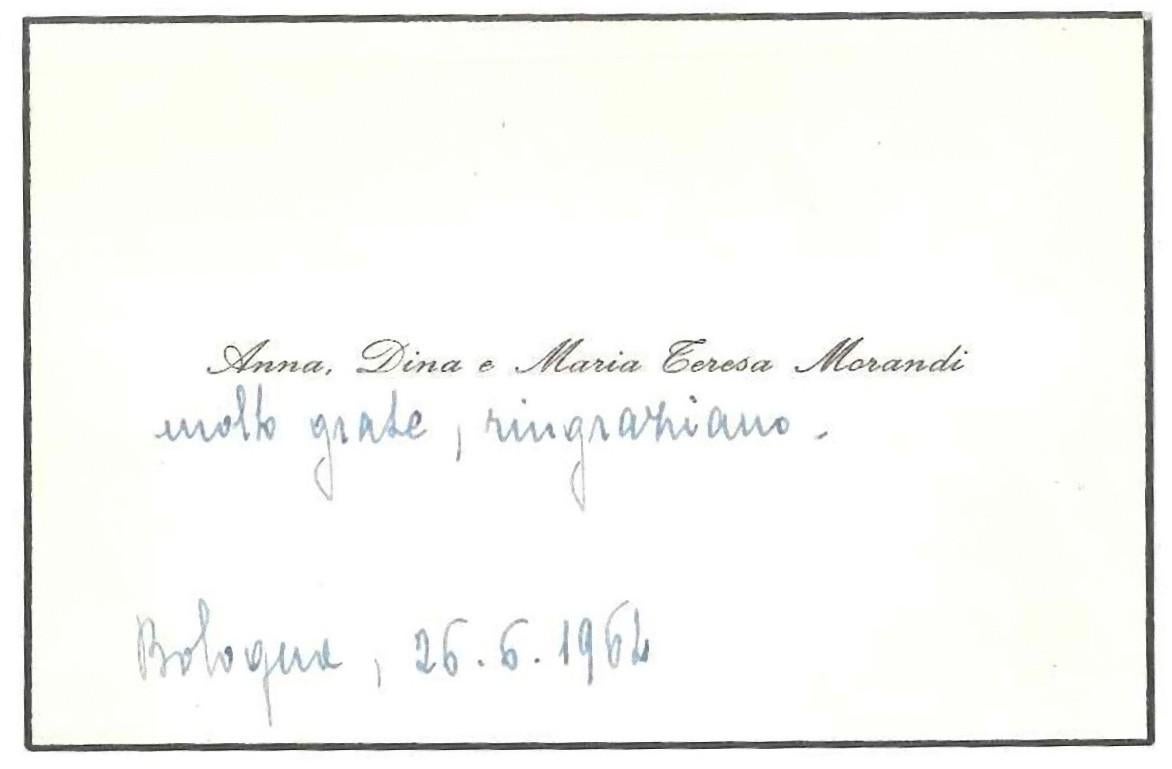 Anna, Dina e Maria Teresa Morandi
molto grate, ringraziano.
Bologna, 26.6.1964